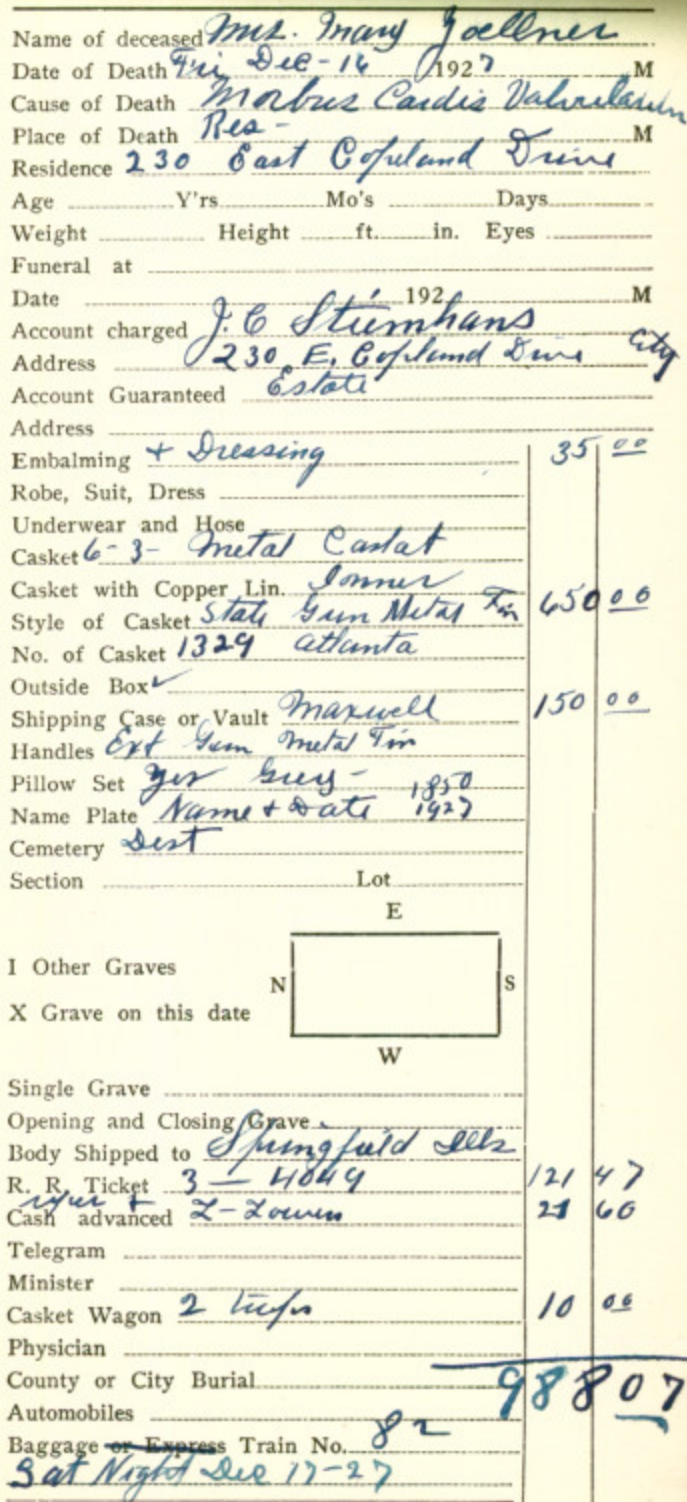 Name of deceased Mrs. Mary Zoellner
Date of Death Fri Dec - 16 1927 M
Cause of Death Morbus Cardis Valvularum
Place of Death Res - M
Residence 230 East Copeland Drive
Age Y'rs Mo's Days
Weight Height ft. in. Eyes
Funeral at
Date 192 M
Account charged J. C Stúmhans
Address 230 E. Copland Drive City
Account Guaranteed Estate
Address
Embalming + Dressing 35 00
Robe, Suit, Dress
Underwear and Hose
Casket 6 - 3 - Metal Casket
Casket with Copper Lin. Inner
Style of Casket State Gun Metal Fin 650 00
No. of Casket 1329 Atlanta
Outside Box ✓
Shipping Case or Vault Maxwell 150 00
Handles Ext Gun Metal Fin
Pillow Set Yes Grey - 1850
Name Plate Name + Date 1927
Cemetery Dest
Section Lot
E
I Other Graves
N S
X Grave on this date
W
Single Grave
Opening and Closing Grave
Body Shipped to Springfield Ills
R. R. Ticket 3 — 4049 121 47
Cash advanced 21 60
Telegram
Minister
Casket Wagon 2 trips 10 00
Physician
County or City Burial 988 07
Automobiles
Baggage or Express Train No. 82
Sat Night Dec 17-27